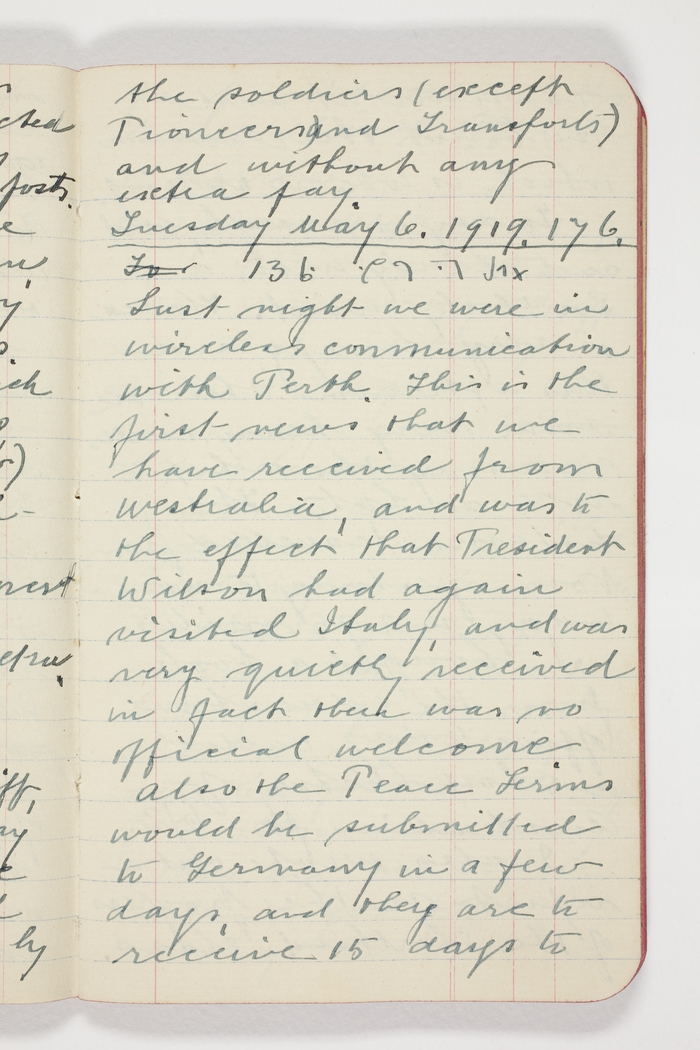 the soldiers (except
Pioneers) and Transports)
and without any
extra pay.
Tuesday May 6. 1919. 176.
For 136.
Last night we were in
wireless communication
with Perth. This is the
first news that we
have received from
Westralia, and was to
the effect that President
Wilson had again
visited Italy, and was
very quietly received
in fact there was no
official welcome
also the Peace Terms
would be submitted
to Germany in a few
days, and they are to
receive 15 days to
cted
posts.
e
ich
b)
by